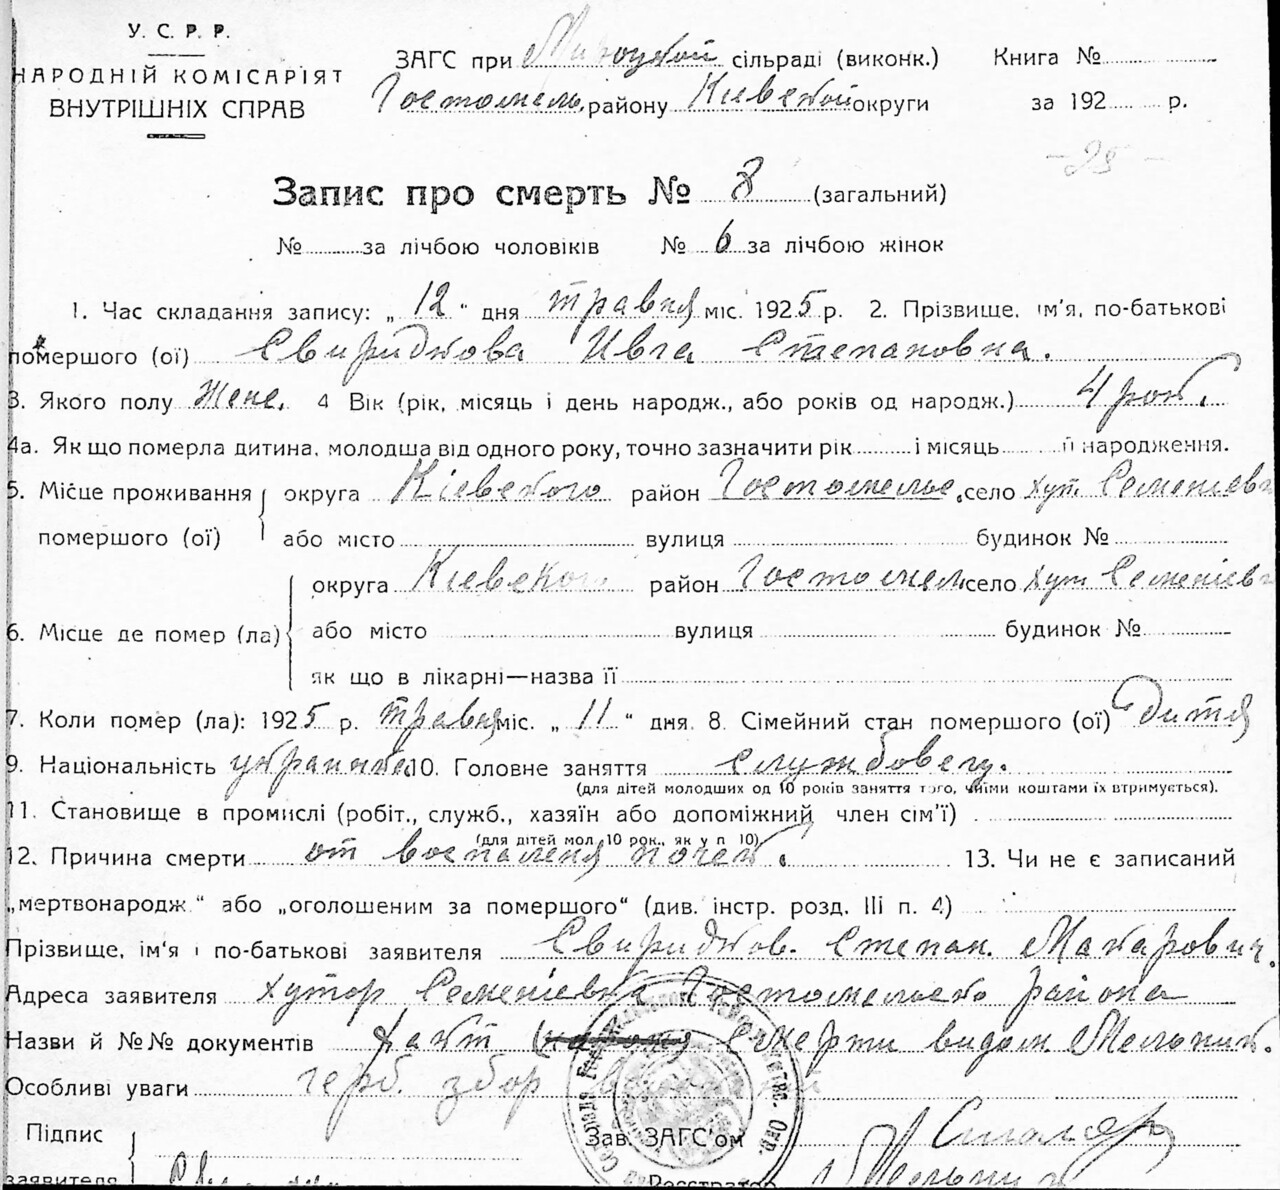 У. С. Р. Р.
НАРОДНІЙ КОМІСАРІЯТ
ВНУТРІШНІХ СПРАВ
ЗАГС при Мироцкой сільраді (виконк.) Книга №
Гостомель. району Кіевской округи за 192 р.
- 25 -
Запис про смерть № 8 (загальний)
№ за лічбою чоловіків № 6 за лічбою жінок
1. Час складання запису: „ 12 " дня травня міс. 1925 р. 2. Прізвище, ім'я, по-батькові
помершого (ої) Свиридкова Ивга Степановна.
3. Якого полу Жене. 4 Вік (рік, місяць і день народж., або років од народж.) 4 рок.
4а. Як що померла дитина, молодша від одного року, точно зазначити рік і місяць її народження.
5. Місце проживання округа Кіевского район Гостомельс. село хут. Семенівк
помершого (ої) або місто вулиця будинок №
округа Кіевского район Гостомел село хут Семенівк
6. Місце де помер (ла) або місто вулиця будинок №
як що в лікарні—назва її
7. Коли помер (ла): 1925 р. травня міс. „ 11 " дня 8. Сімейний стан помершого (ої) Дитя
9. Національність украинк. 10. Головне заняття службовец.
(для дітей молодших од 10 років заняття того, чиїми коштами їх втримується).
11. Становище в промислі (робіт., служб., хазяїн або допоміжний член сім'ї)
(для дітей мол. 10 рок., як у п 10)
12. Причина смерти от воспаленя почек. 13. Чи не є записаний
„мертвонародж." або „оголошеним за помершого" (див. інстр. розд. III п. 4)
Прізвище, ім'я і по-батькові заявителя Свиридков. Степан. Макарович.
Адреса заявителя Хутор Семенівка Гостомельско района
Назви й №№ документів факт смерти видом Мельник.
Особливі уваги герб. збор
Підпис Зав. ЗАГС'ом Столяр
заявителя Реєстратор Мельник